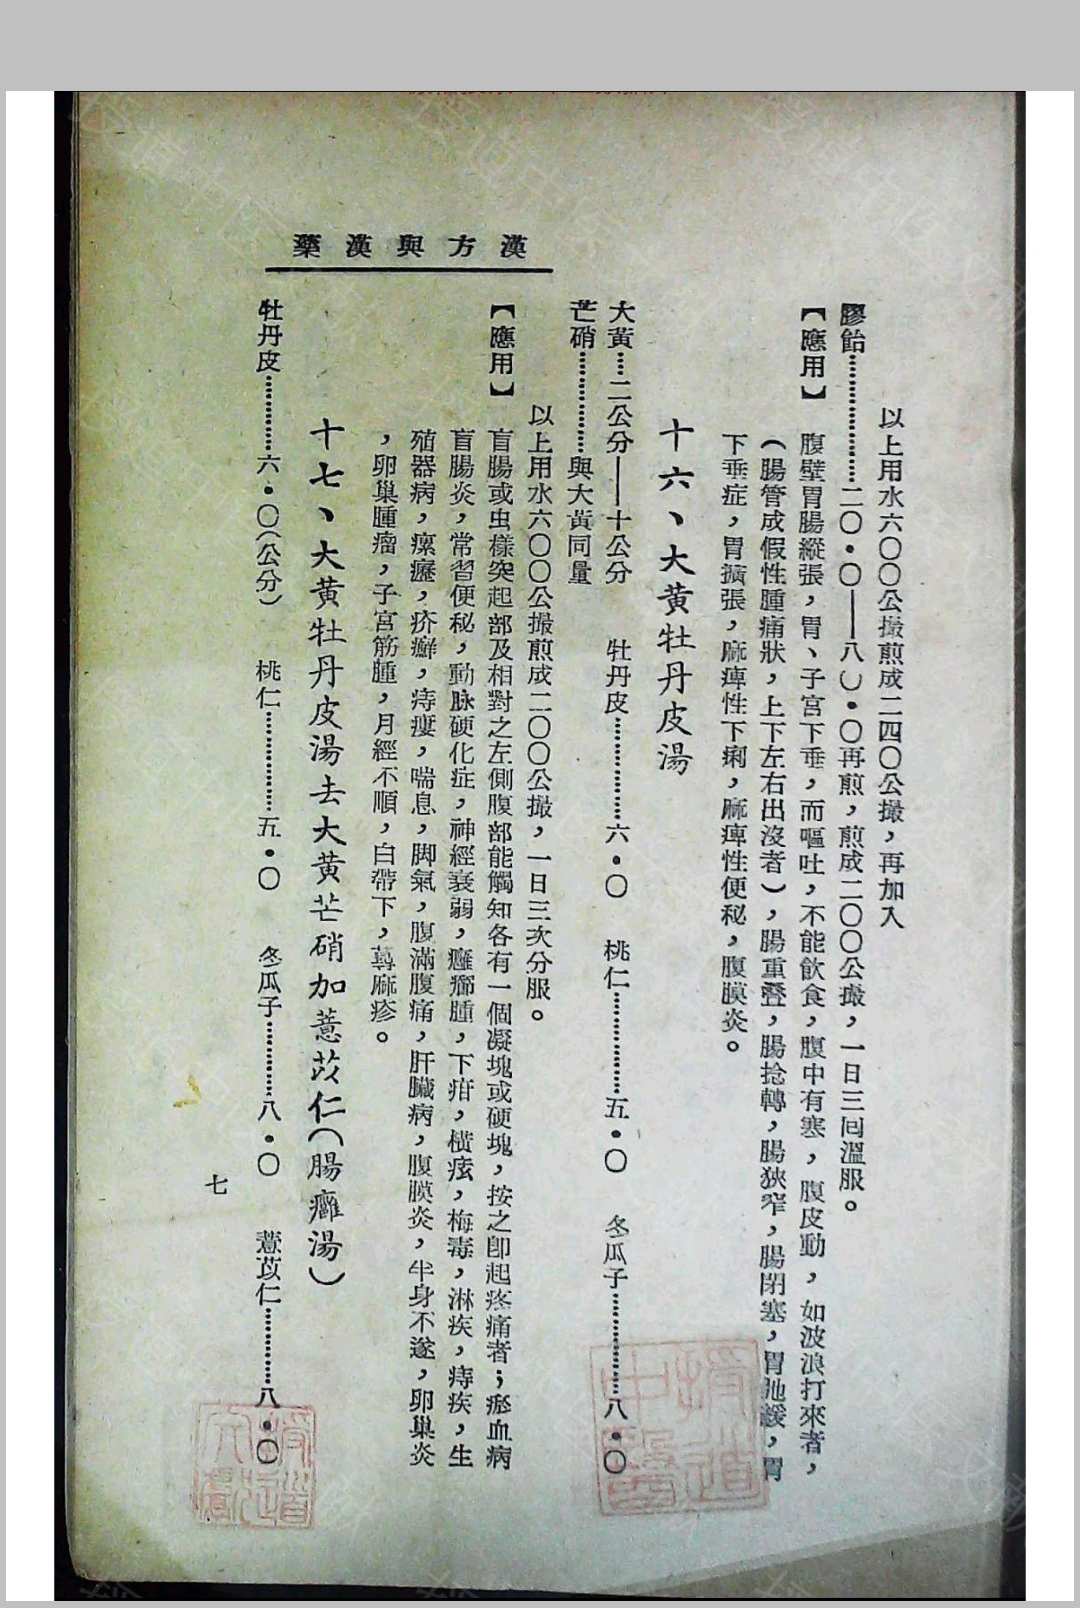 漢方與漢藥
以上用水六〇〇公撮煎成二四〇公撮，再加入
膠飴………………二〇・〇——八〇・〇再煎，煎成二〇〇公撮，一日三回溫服。
【應用】腹壁胃腸縱張，胃、子宮下垂，而嘔吐，不能飲食，腹中有寒，腹皮動，如波浪打來者，
（腸管成假性腫痛狀，上下左右出沒者），腸重疊，腸捻轉，腸狹窄，腸閉塞，胃弛緩，胃
下垂症，胃擴張，麻痺性下痢，麻痺性便秘，腹膜炎。
十六、大黃牡丹皮湯
大黃……二公分——十公分　牡丹皮……………六・〇　桃仁……………五・〇　冬瓜子……………八・〇
芒硝……………與大黃同量
以上用水六〇〇公撮煎成二〇〇公撮，一日三次分服。
【應用】盲腸或虫樣突起部及相對之左側腹部能觸知各有一個凝塊或硬塊，按之卽起疼痛者；瘀血病
盲腸炎，常習便秘，動脉硬化症，神經衰弱，癰癤腫，下疳，橫痃，梅毒，淋疾，痔疾，生
殖器病，瘰癧，疥癬，痔瘻，喘息，脚氣，腹滿腹痛，肝臟病，腹膜炎，半身不遂，卵巢炎
，卵巢腫瘤，子宮筋腫，月經不順，白帶下，蕁麻疹。
十七、大黃牡丹皮湯去大黃芒硝加薏苡仁（腸癰湯）
牡丹皮…………六・〇（公分）　桃仁……………五・〇　冬瓜子…………八・〇　薏苡仁…………八・〇
七